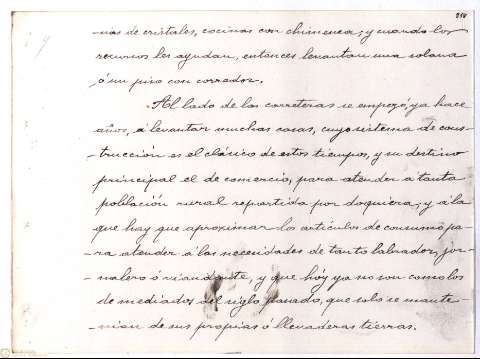 210
-nas de cristales, cocinas con chimenea; y cuando los
recursos les ayudan, entonces levantan una solana
ó un piso con corredor.
Al lado de las carreteras se empezó, ya hace
años, á levantar muchas casas, cuyo sistema de cons-
-trucción es el clásico de estos tiempos, y su destino
principal el de comercio, para atender á tanta
población rural repartida por doquiera; y á la
que hay que aproximar los artículos de consumo pa-
ra atender á las necesidades de tanto labrador, jor-
-nalero ó viandante, y que hoy ya no son como los
de mediados del siglo pasado, que solo se mante-
-nian de sus propias ó llevaderas tierras.